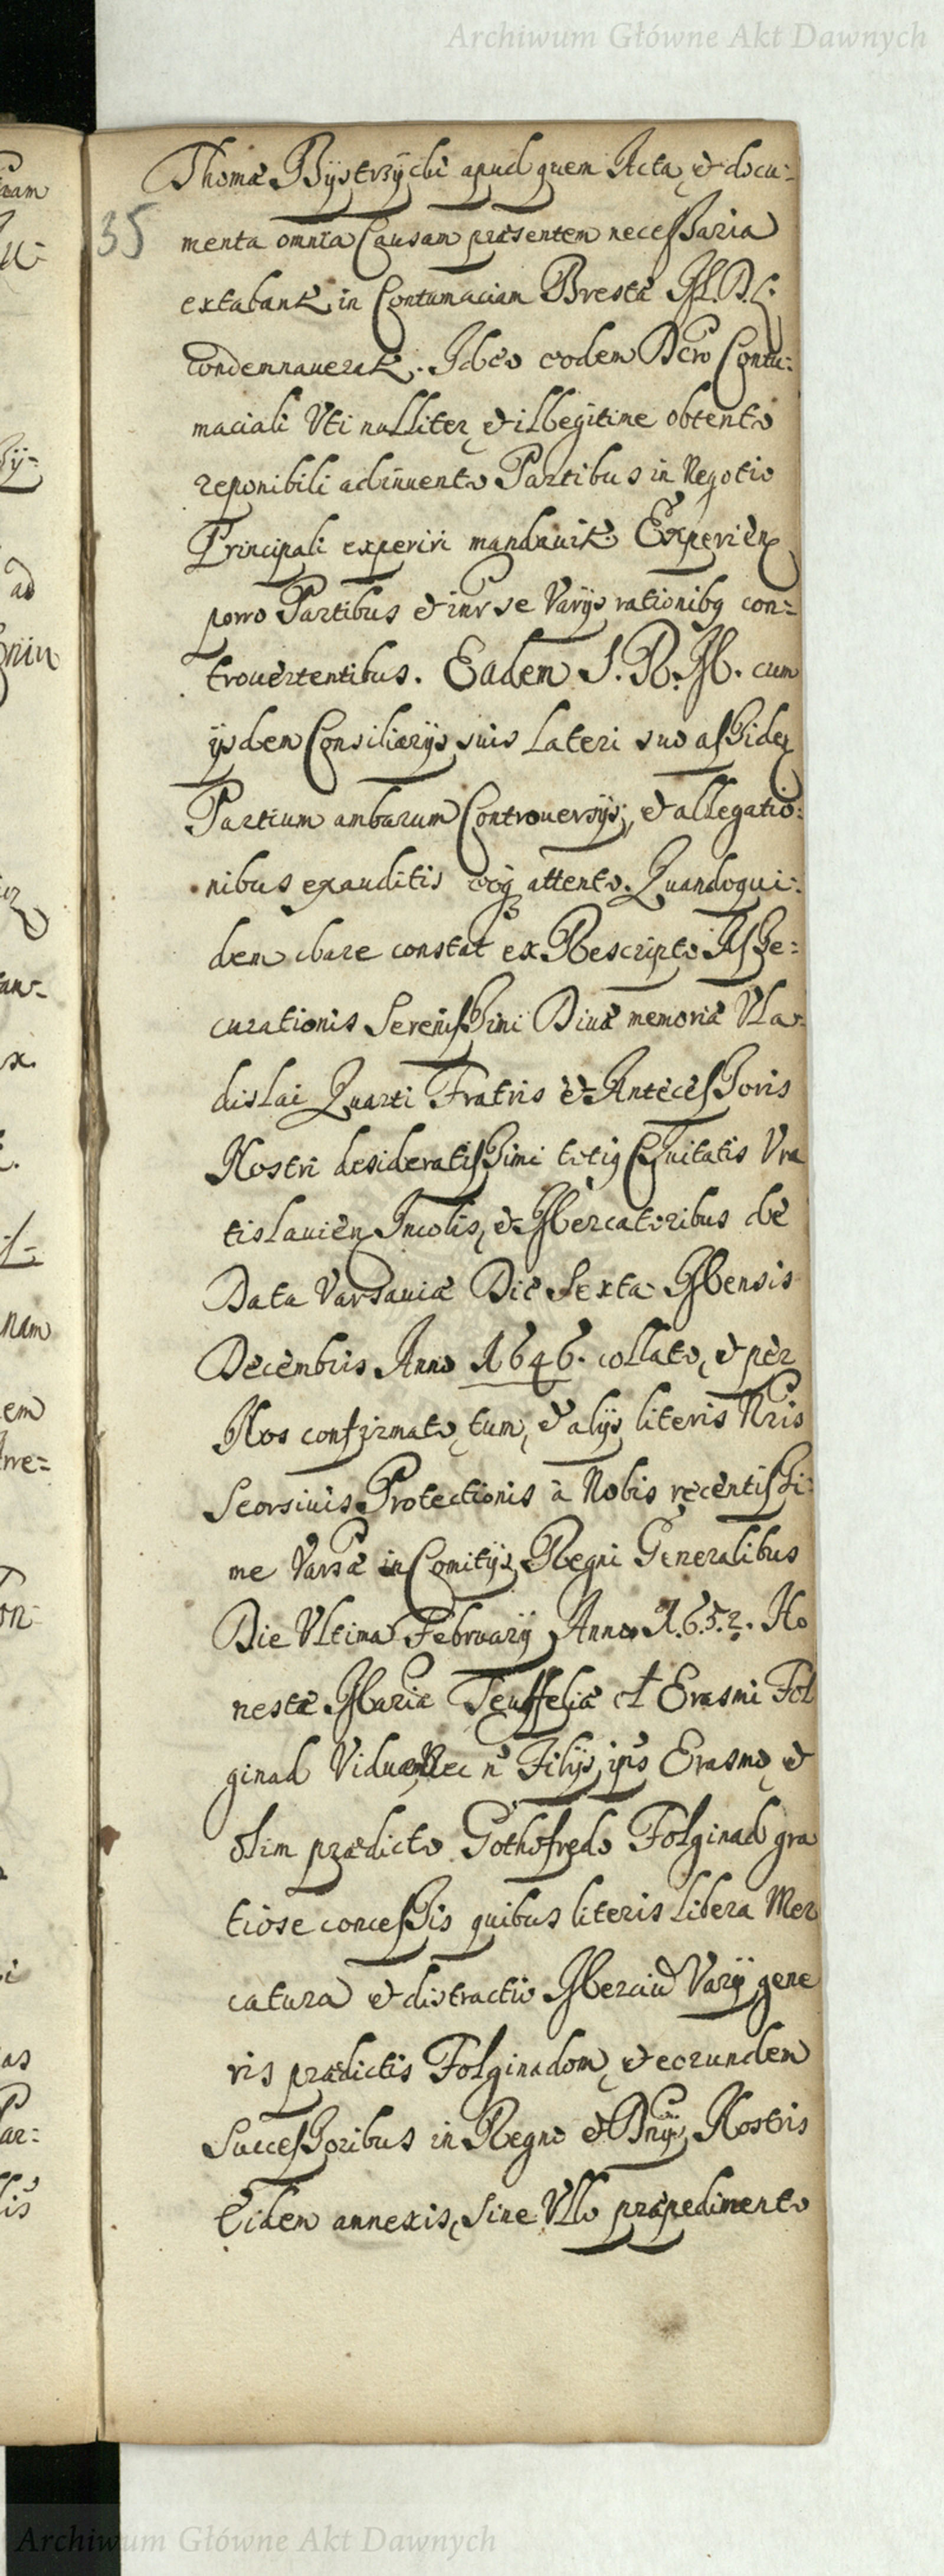 Archiwum Główne Akt Dawnych
35
Thomæ Bystrzycki apud quem Acta, et docu:
menta omnia Causam præsentem necessaria
extabant, in Contumaciam Brestæ
condemnauerat. Ideo eodem Dcro Contu:
maciali Uti nulliter, et illegitime obtento
reponibili adinuento Partibus in Negotio
Principali experiri mandauit. Experien
porro Partibus et inr se Varijs rationibq con=
trouertentibus. Eadem S. R. M. cum
ijsdem Consiliarijs suis Lateri suo assiden
Partium ambarum Controuersijs, et allegatio:
nibus exauditis attento. Quandoqui:
dem clare constat ex Rescripto Asse=
curationis Serenissimi Diuæ memoriæ Vla:
dislai Quarti Fratris et Antecessoris
Nostri desideratissimi totiq Ciuitatis Vra
tislauien Incolis, et Mercatoribus de
Data Varsauiæ Die Sexta Mensis
Decembris Anno 1646. collato, et per
Nos confirmato, tum, et alijs literis Nris
Seorsiuis Protectionis à Nobis recentissi:
me Varsæ in Comitijs Regni Generalibus
Die Vltima February Anno 1652. Ho
nestæ Mariæ Teuffeliæ Erasmi Fol
ginad Viduæ, Nec n Filijs, ips Erasmo, et
olim prædicto Gothofredo Folginad gra
tiose concessis quibus literis Libera Mer
catura et distractio Merciu Varij gene
ris prædictis Folginadom, et eorundem
Successoribus in Regno et Dnijs Nostris
Eidem annexis, Sine Vllo præpedimento
Archiwum Główne Akt Dawnych